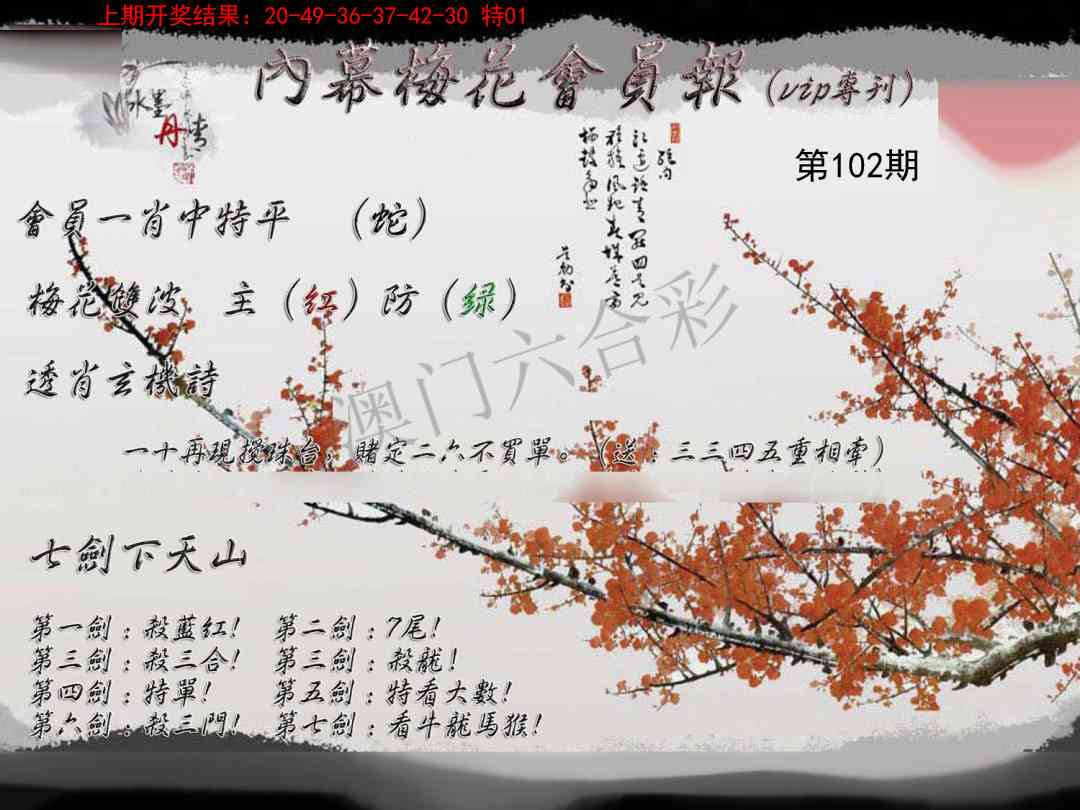 上期开奖结果：20-49-36-37-42-30 特01
內幕梅花會員報（vip專刊）
水墨丹青
第102期
會員一肖中特平 （蛇）
梅花雙波 主（红）防（绿）
透肖玄機詩
澳门六合彩
一十再現攪珠台，賭定二六不買單。（送：三三四五重相牽）
七劍下天山
第一劍：殺藍紅！ 第二劍：7尾！
第三劍：殺三合！ 第三劍：殺龍！
第四劍：特單！ 第五劍：特看大數！
第六劍：殺三門！ 第七劍：看牛龍馬猴！